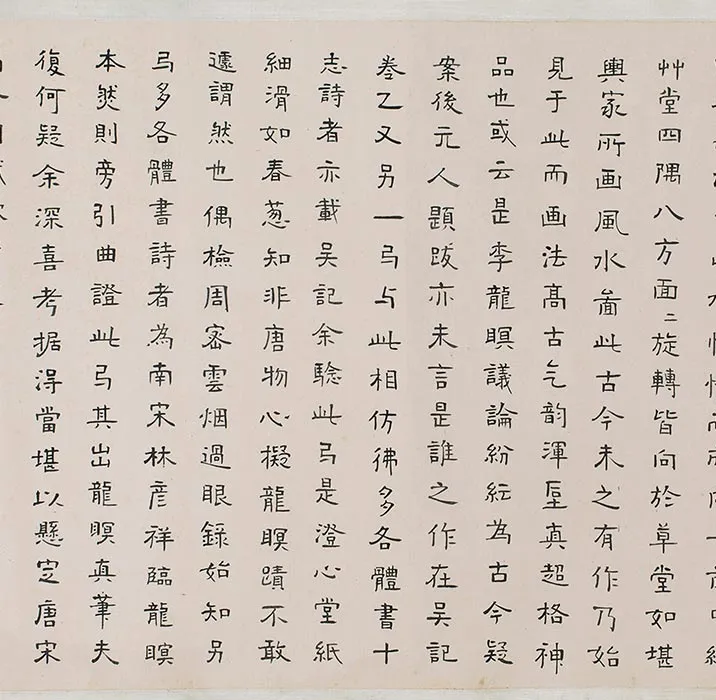 艸堂四隅八方面二旋轉皆向於草堂如堪
輿家所画風水啚此古今未之有作乃始
見于此而画法髙古气韵渾垕真超格神
品也或云是李龍瞑議論紛紜為古今疑
案後元人題跋亦未言是誰之作在吴記
巻乙又另一弓与此相仿彿多各體書十
志詩者亦載吴記余騐此弓是澄心堂紙
細滑如春葱知非唐物心擬龍瞑蹟不敢
遽謂然也偶檢周宻雲烟過眼錄始知另
弓多各體書詩者為南宋林彦祥臨龍瞑
本然則旁引曲證此弓其出龍瞑真筆夫
復何疑余深喜考据淂當堪以懸定唐宋